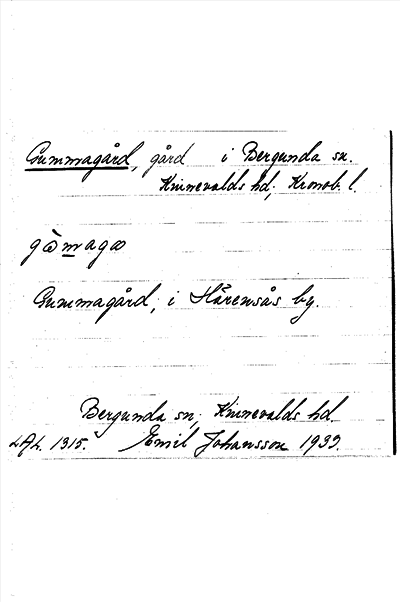 Gummagård, gård i Bergunda sn.
Kinnevalds hd, Kronob. l.
gò̈magœ
Gummagård, i Hårensås by.
Bergunda sn, Kinnevalds hd.
LAL. 1315. Emil Johansson 1933.